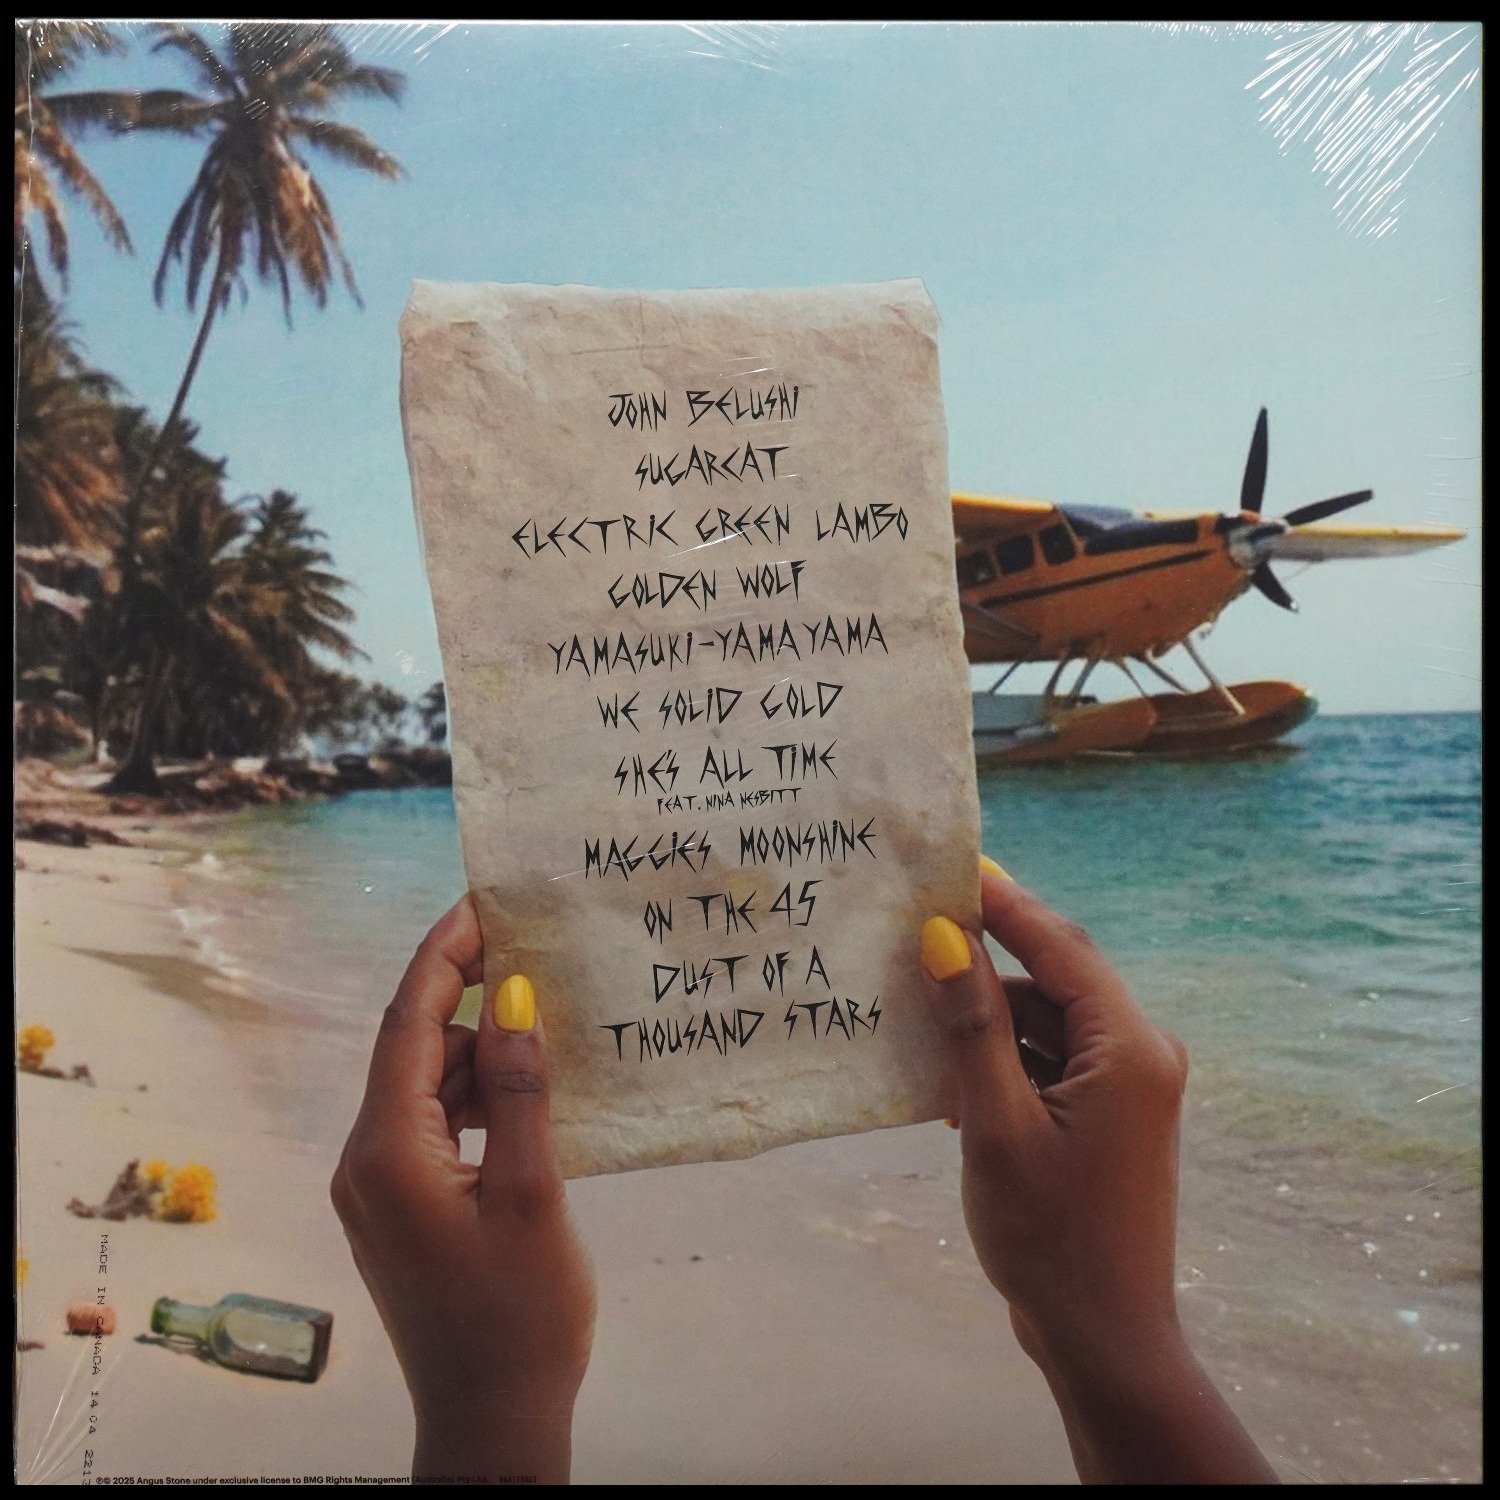 JOHN BELUSHI
SUGARCAT
ELECTRIC GREEN LAMBO
GOLDEN WOLF
YAMASUKI-YAMAYAMA
WE SOLID GOLD
SHE'S ALL TIME
FEAT. NINA NESBITT
MAGGIES MOONSHINE
ON THE 45
DUST OF A
THOUSAND STARS
MADE IN CANADA 14 04
℗© 2025 Angus Stone under exclusive license to BMG Rights Management (Australia) Pty Ltd.